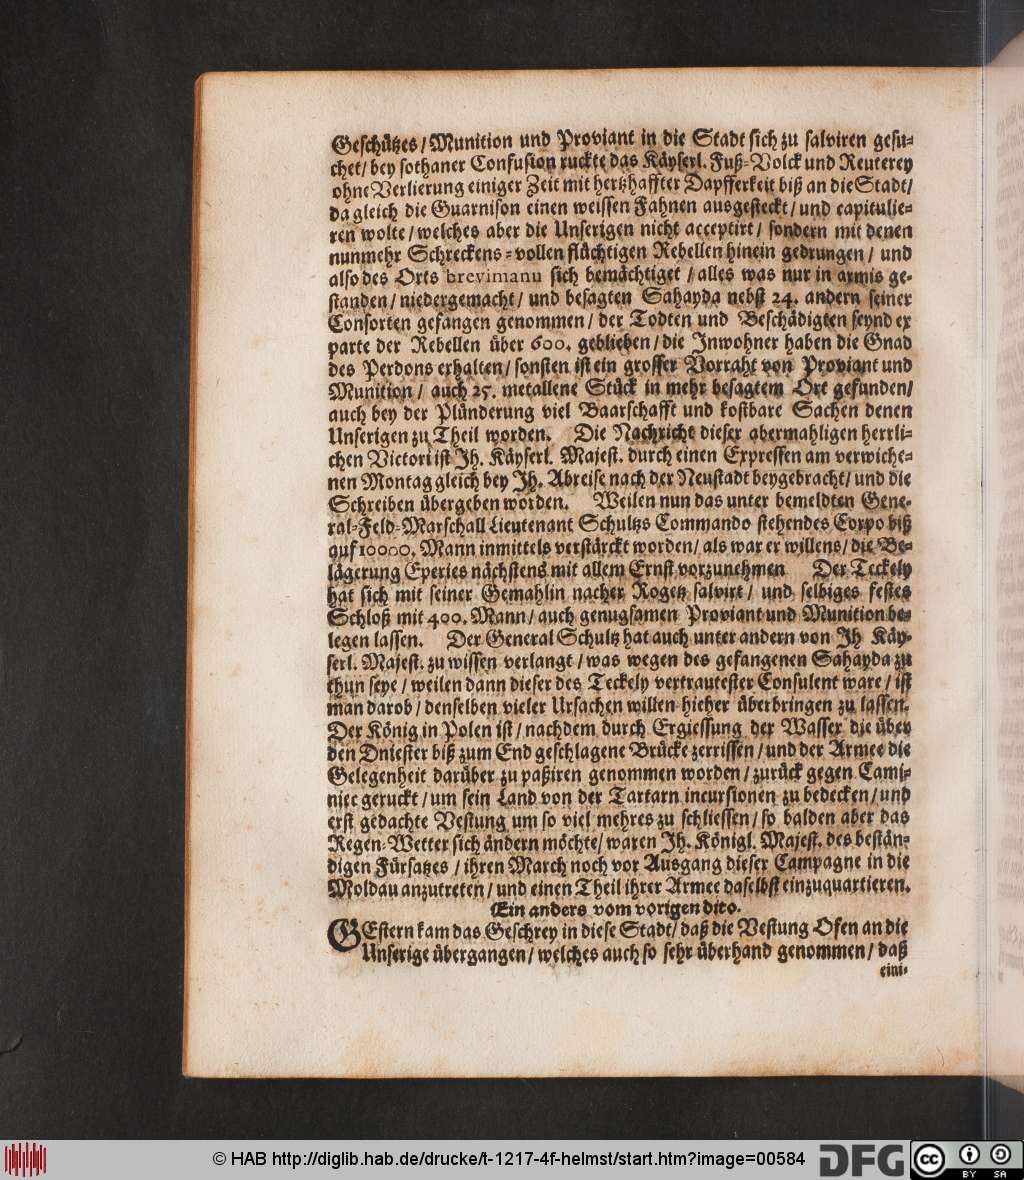 Geschützes / Munition und Proviant in die Stadt sich zu salviren gesu-
chet / bey sothaner Confusion ruckte das Käyserl. Fuß-Volck und Reuterey
ohne Verlierung einiger Zeit mit hertzhaffter Dapfferkeit biß an die Stadt /
da gleich die Guarnison einen weissen Fahnen ausgesteckt / und capitulie-
ren wolte / welches aber die Unserigen nicht acceptirt / sondern mit denen
nunmehr Schreckens-vollen flüchtigen Rebellen hinein gedrungen / und
also des Orts brevimanu sich bemächtiget / alles was nur in armis ge-
standen / niedergemacht / und besagten Sahayda nebst 24. andern seiner
Consorten gefangen genommen / der Todten und Beschädigten seynd ex
parte der Rebellen über 600. geblieben / die Inwohner haben die Gnad
des Perdons erhalten / sonsten ist ein grosser Vorraht von Proviant und
Munition / auch 25. metallene Stück in mehr besagtem Ort gefunden /
auch bey der Plünderung viel Baarschafft und kostbare Sachen denen
Unserigen zu Theil worden. Die Nachricht dieser abermahligen herrli-
chen Victori ist Ih. Käyserl. Majest. durch einen Expressen am verwiche-
nen Montag gleich bey Ih. Abreise nach der Neustadt beygebracht / und die
Schreiben übergeben worden. Weilen nun das unter bemeldten Gene-
ral-Feld-Marschall Lieutenant Schultzs Commando stehendes Corpo biß
auf 10000. Mann inmittels verstärckt worden / als war er willens / die Be-
lägerung Eperies nächstens mit allem Ernst vorzunehmen Der Teckely
hat sich mit seiner Gemahlin nacher Rogetz salvirt / und selbiges festes
Schloß mit 400. Mann / auch genugsamen Proviant und Munition be-
legen lassen. Der General Schultz hat auch unter andern von Ih Käy-
serl. Majest. zu wissen verlangt / was wegen des gefangenen Sahayda zu
thun seye / weilen dann dieser des Teckely vertrautester Consulent ware / ist
man darob / denselben vieler Ursachen willen hieher überbringen zu lassen.
Der König in Polen ist / nachdem durch Ergiessung der Wasser die über
den Dniester biß zum End geschlagene Brücke zerrissen / und der Armee die
Gelegenheit darüber zu paßiren genommen worden / zurück gegen Cami-
niec geruckt / um sein Land von der Tartarn incursionen zu bedecken / und
erst gedachte Vestung um so viel mehres zu schliessen / so balden aber das
Regen-Wetter sich ändern möchte / waren Ih. Königl. Majest. des bestän-
digen Fürsatzes / ihren March noch vor Ausgang dieser Campagne in die
Moldau anzutreten / und einen Theil ihrer Armee daselbst einzuquartieren.
Ein anders vom vorigen dito.
GEstern kam das Geschrey in diese Stadt / daß die Vestung Ofen an die
Unserige übergangen / welches auch so sehr überhand genommen / daß
eini-
© HAB http://diglib.hab.de/drucke/t-1217-4f-helmst/start.htm?image=00584
DFG
cc
BY SA